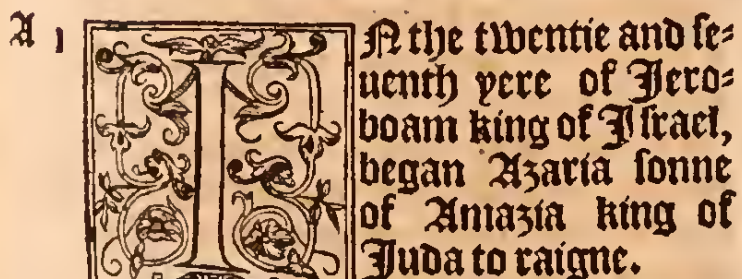 A 1 IN the twentie and se=
uenth yere of Jero=
boam king of Israel,
began Azaria sonne
of Amazia king of
Juda to raigne.